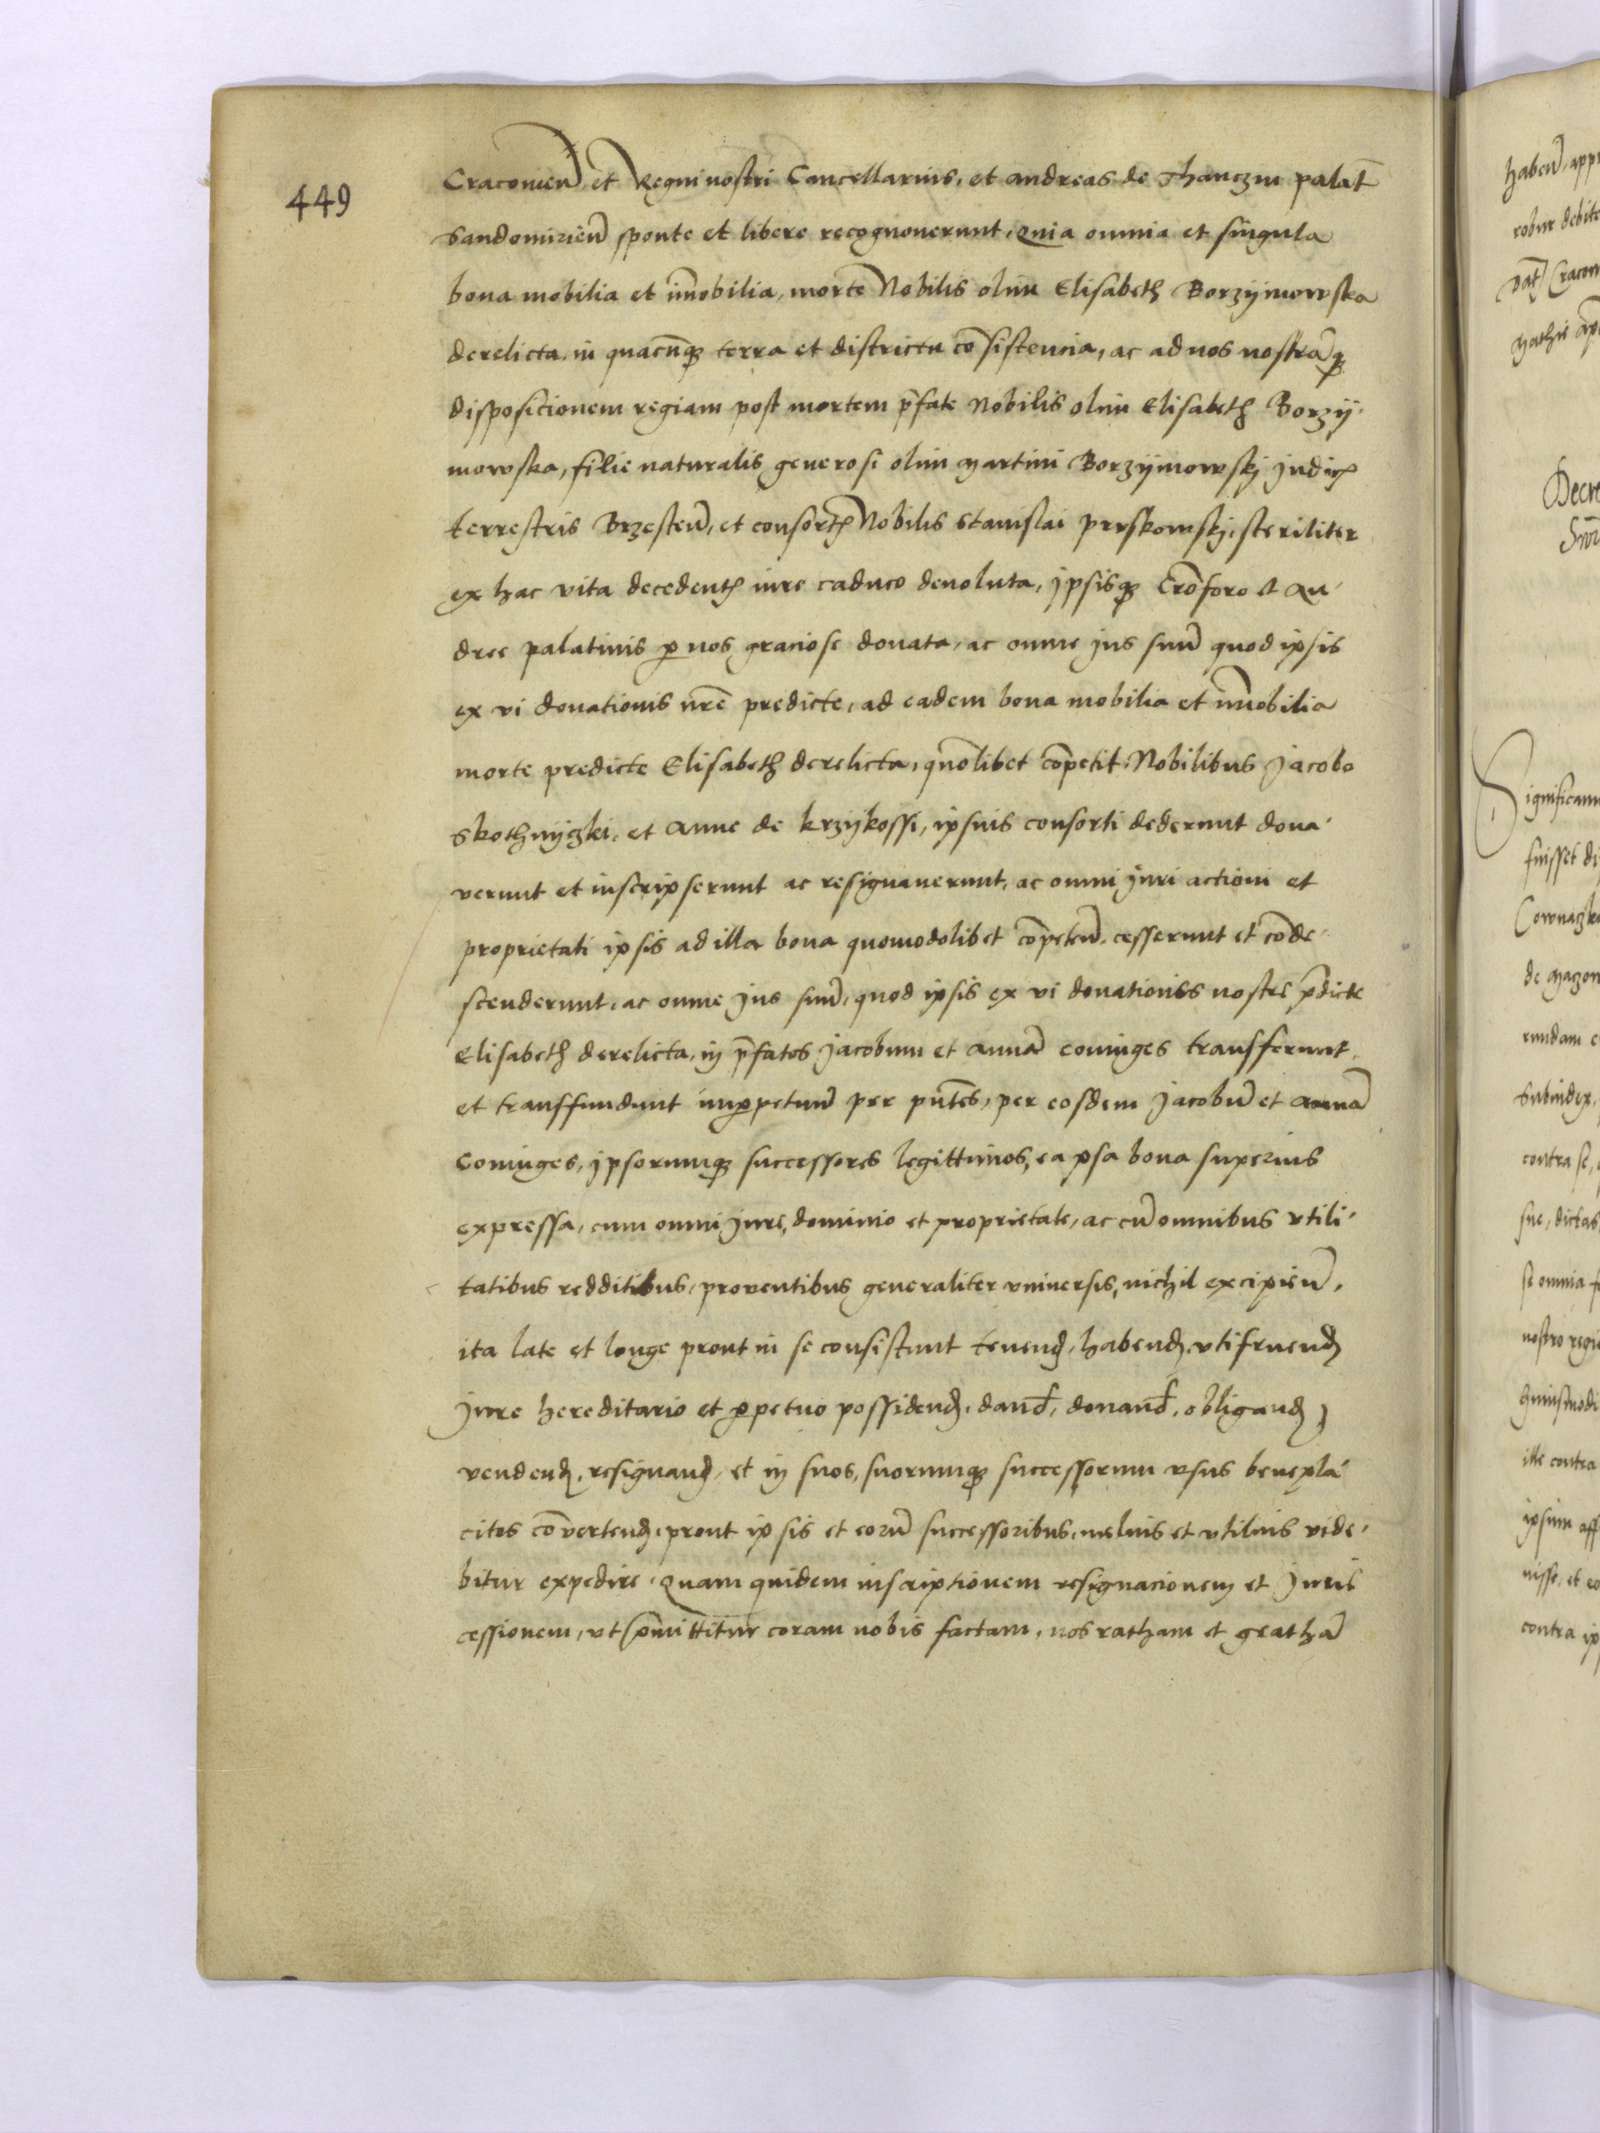 449
Cracovien̄ et Regni nostri Cancellarius, et Andreas de Thanczin palat̄
Sandomirien̄ sponte et libere recognoverunt, Quia omnia et singula
bona mobilia et īmobilia, morte Nobilis olim Elisabeth Borzÿmowska
derelicta, in quacūq₃ terra et districtu cōsistencia, ac ad nos nostrāq₃
disposicionem regiam post mortem p̄fate Nobilis olim Elisabeth Borzÿ-
mowska, filie naturalis generosi olim Martini Borzÿmowskj Judicꝭ
terrestris Brzesten̄, et consortꝭ Nobilis Stanislai Pruskowskj, steriliter
ex hac vita decedentꝭ iure caduco devoluta, ipsisq₃ Crōforo et An-
dree palatinis ꝑ nos graciose donata, ac omne Jus suū quod ipsis
ex vi donationis nr̄e predicte, ad eadem bona mobilia et īmobilia
morte predicte Elisabeth derelicta, quōlibet cōpetit, Nobilibus Jacobo
Skothnÿczki, et Anne de Krzÿkossi, ipsius consorti dederunt dona-
verunt et inscripserunt ac resignaverunt, ac omni Juri actioni et
proprietati ipsis ad illa bona quomodolibet cōpeten̄, cesserunt et cōde-
scenderunt, ac omne Jus suū, quod ipsis ex vi donationis nostre p̄dicte
Elisabeth derelicta, in p̄fatos Jacobum et Annā coniuges transferunt
et transffundunt imꝑpetuū per pn̄tes, per eosdem Jacobū et Annā
Coniuges, ipsorumq₃ successores legittimos, ea ipsa bona superius
expressa, cum omni Jure, dominio et proprietate, ac cū omnibus vtili-
tatibus redditibus, proventibus generaliter vniversis, nichil excipien̄,
ita late et longe prout in se consistunt tenenđ, habenđ, vtifruenđ
Jure hereditario et ꝑpetuo possidenđ, danđ, donanđ, obliganđ
vendenđ, resignanđ, et in suos, suorumq₃ successorum vsus benepla-
citos cōvertenđ, prout ipsis et eorū successoribus, melius et vtilius vide-
bitur expedire, Quam quidem inscriptionem resignacionem et Juris
cessionem, vt p̄mittitur coram nobis factam, nos ratham et grathā
haben̄, app
robur debit
Dat̄ Cracov
Decre
Significam
fuisset di
de Mazo
rundam
Subiudex,
contra se,
sue, dictas
se omnia f
nostro regi
ille contra
ipsum aff
nisse, et eo
contra ip